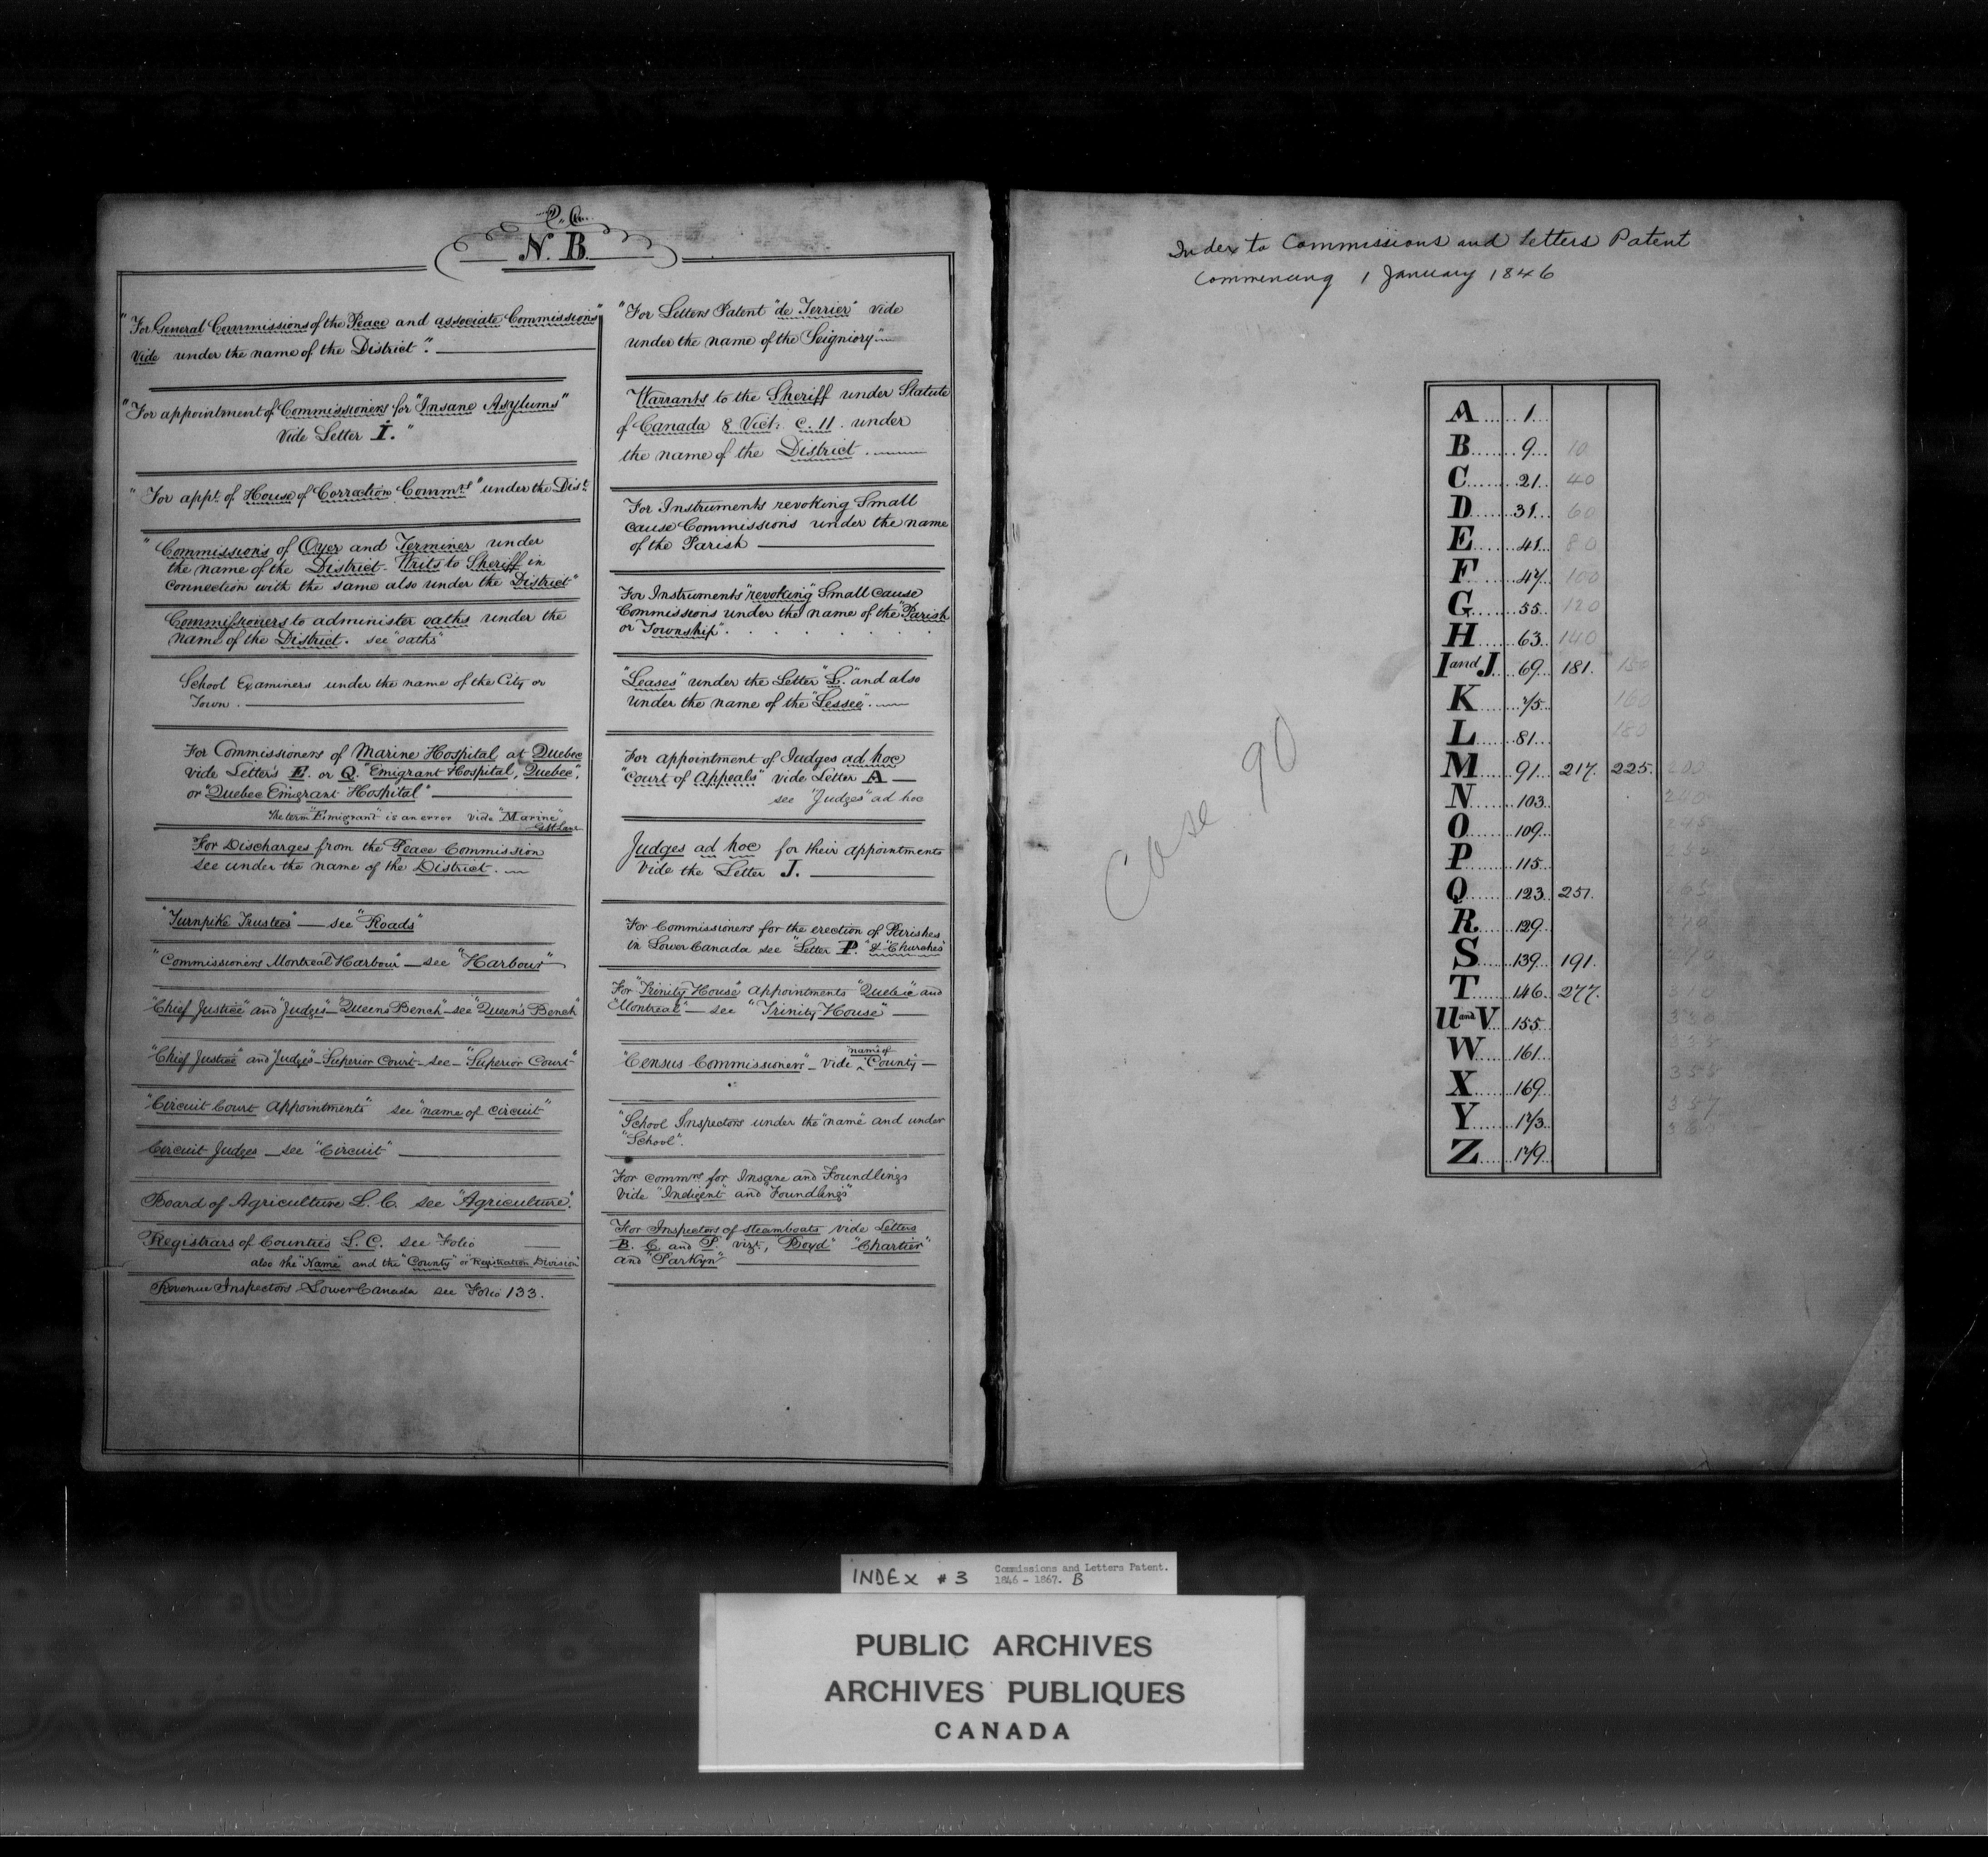 N. B.
"For General Commissions of the Peace and associate Commissions"
Vide under the name of the District".
"For appointment of Commissioners for "Insane Asylums"
Vide Letter I."
"For appt. of House of Correction Commrs" under the Dist.
"Commissions of Oyer and Terminer under
the name of the District. Writs to Sheriff in
connection with the same also under the District"
Commissioners to administer oaths under the
name of the District. see "oaths"
School Examiners under the name of the City or
Town.
For Commissioners of Marine Hospital at Quebec
vide Letters E. or Q. "Emigrant Hospital, Quebec",
or "Quebec Emigrant Hospital"
The term "Emigrant" is an error vide "Marine"
For Discharges from the Peace Commission
see under the name of the District.
"Turnpike Trustees" — see "Roads"
"Commissioners Montreal Harbour" — see "Harbour"
"Chief Justice" and "Judges" — "Queens Bench" — see "Queen's Bench"
"Chief Justice" and "Judges" — "Superior Court" — see — "Superior Court"
"Circuit Court Appointments" see "name of circuit"
Circuit Judges — see "Circuit"
Board of Agriculture L. C. see "Agriculture".
Registrars of Counties L. C. see Folio
also the "Name" and the "County" or "Registration Division"
Revenue Inspectors Lower Canada see Folio 133.
"For Letters Patent "de Terrier" vide
under the name of the Seigniory"
Warrants to the Sheriff under Statute
of Canada 8 Vict: c. 11. under
the name of the District.
For Instruments revoking Small
cause Commissions under the name
of the Parish
For Instruments "revoking" Small cause
Commissions under the name of the "Parish
or Township".
"Leases" under the Letter "L." and also
under the name of the "Lessee".
For appointment of Judges ad hoc
"Court of Appeals" vide Letter A —
see "Judges" ad hoc
Judges ad hoc for their appointments
Vide the Letter J.
For Commissioners for the erection of Parishes
in Lower Canada see "Letter P." & "Churches"
For "Trinity House" Appointments "Quebec" and
"Montreal" — see "Trinity House" —
"Census Commissioners" — vide name of "County" —
"School Inspectors under the "name" and under
"School".
For commrs for Insane and Foundlings
Vide "Indigent" and "Foundlings"
For Inspectors of steamboats vide Letters
B. C. and P. vizt, "Boyd" "Chartier"
and "Parkyn"
Index to Commissions and Letters Patent
Commencing 1 January 1846
Case 90
A 1
B 9 10
C 21 40
D 31 60
E 41 80
F 47 100
G 55 120
H 63 140
I and J 69 181 150
K 75 160
L 81 180
M 91 217 225 200
N 103 240
O 109 245
P 115 250
Q 123 251 265
R 129 270
S 139 191 290
T 146 277 310
U and V 155 330
W 161 335
X 169 355
Y 173 357
Z 179
INDEX #3 Commissions and Letters Patent.
1846 - 1867. B
PUBLIC ARCHIVES
ARCHIVES PUBLIQUES
CANADA